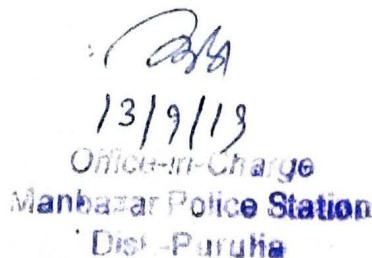 13/9/19
Office-in-Charge
Manbazar Police Station
Dist.-Purulia